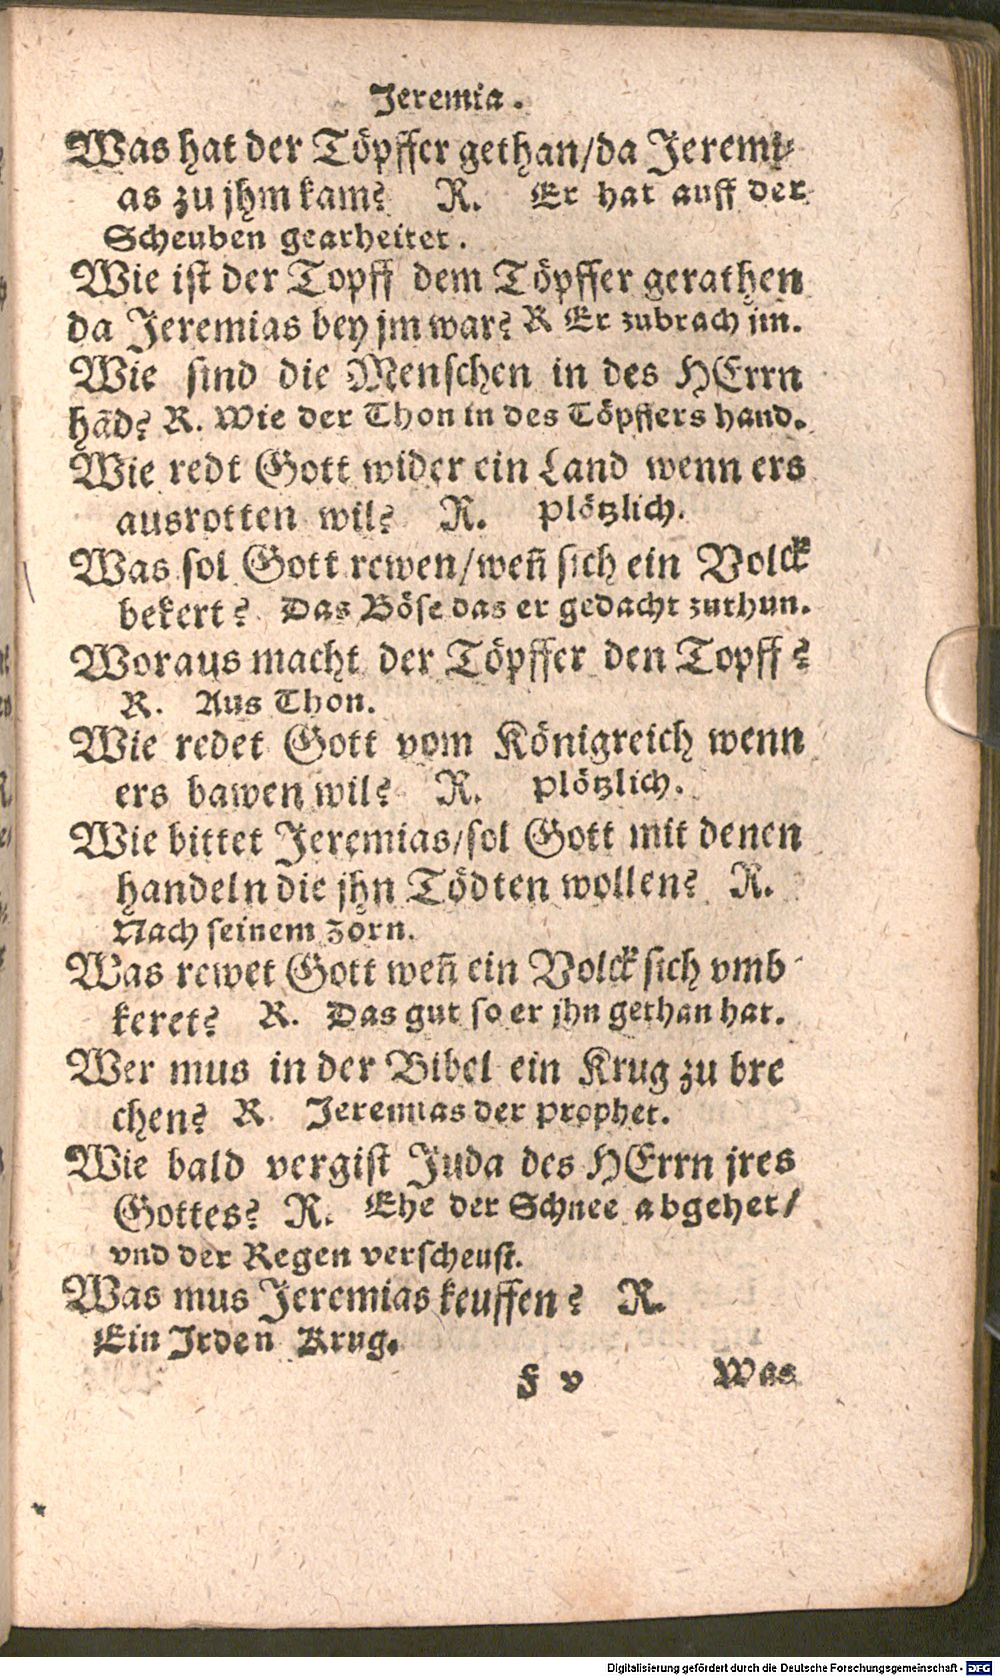 Jeremia.
Was hat der Töpffer gethan/da Jeremi-
as zu jhm kam? R. Er hat auff der
Scheuben gearbeitet.
Wie ist der Topff dem Töpffer gerathen
da Jeremias bey jm war? R Er zubrach jm.
Wie sind die Menschen in des HErrn
hãd? R. Wie der Thon in des Töpffers hand.
Wie redt Gott wider ein Land wenn ers
ausrotten wil? R. plötzlich.
Was sol Gott rewen/weñ sich ein Volck
bekert? Das Böse das er gedacht zuthun.
Woraus macht der Töpffer den Topff?
R. Aus Thon.
Wie redet Gott vom Königreich wenn
ers bawen wil? R. plötzlich.
Wie bittet Jeremias/sol Gott mit denen
handeln die jhn Tödten wollen? R.
Nach seinem zorn.
Was rewet Gott weñ ein Volck sich vmb-
keret? R. Das gut so er jhn gethan hat.
Wer mus in der Bibel ein Krug zu bre
chen? R Jeremias der prophet.
Wie bald vergist Juda des HErrn jres
Gottes? R. Ehe der Schnee abgehet/
vnd der Regen verscheust.
Was mus Jeremias keuffen? R.
Ein Jrden Krug.
F v Was
Digitalisierung gefördert durch die Deutsche Forschungsgemeinschaft - DFG